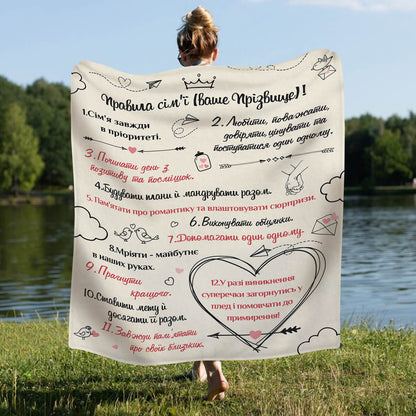 Правила сім'ї {Ваше Прізвище}!
1.Сім'я завжди
в пріоритеті.
2. Любити, поважати,
довіряти, цінувати та
поступатися один одному.
3. Починати день з
позитиву та посмішок.
4.Будувати плани й мандрувати разом.
5.Пам'ятати про романтику та влаштовувати сюрпризи.
6. Виконувати обіцянки.
7.Допомагати один одному.
8.Мріяти - майбутнє
в наших руках.
9. Прагнути
кращого.
10.Ставити мету й
досягати її разом.
11. Завжди пам'ятати
про своїх близьких.
12.У разі виникнення
суперечки загорнутись у
плед і помовчати до
примирення!